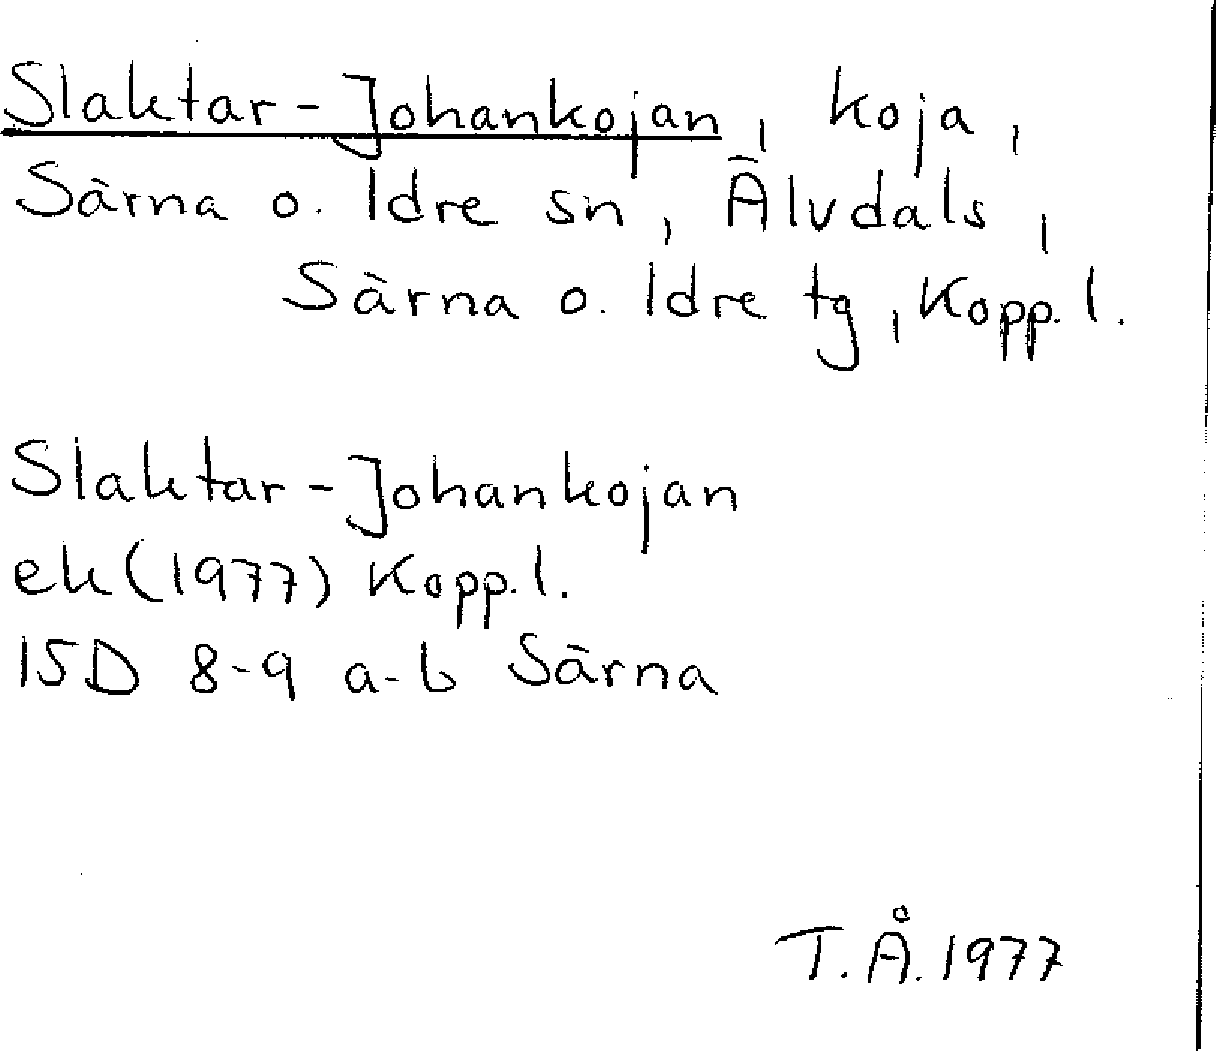 Slaktar-Johankojan, koja,
Särna o. Idre sn, Älvdals,
Särna o. Idre tg, Kopp. l.
Slaktar-Johankojan
ek (1977) Kopp. l.
15D 8-9 a-b Särna
T.Å. 1977